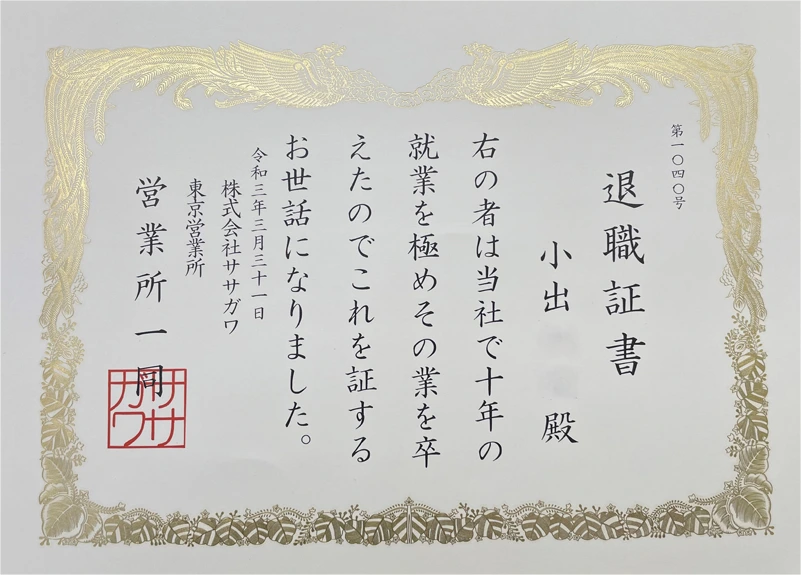 第一〇四〇号
退職証書
小出 殿
右の者は当社で十年の
就業を極めその業を卒
えたのでこれを証する
お世話になりました。
令和三年三月三十一日
株式会社ササガワ
東京営業所
営業所一同
ササガワ